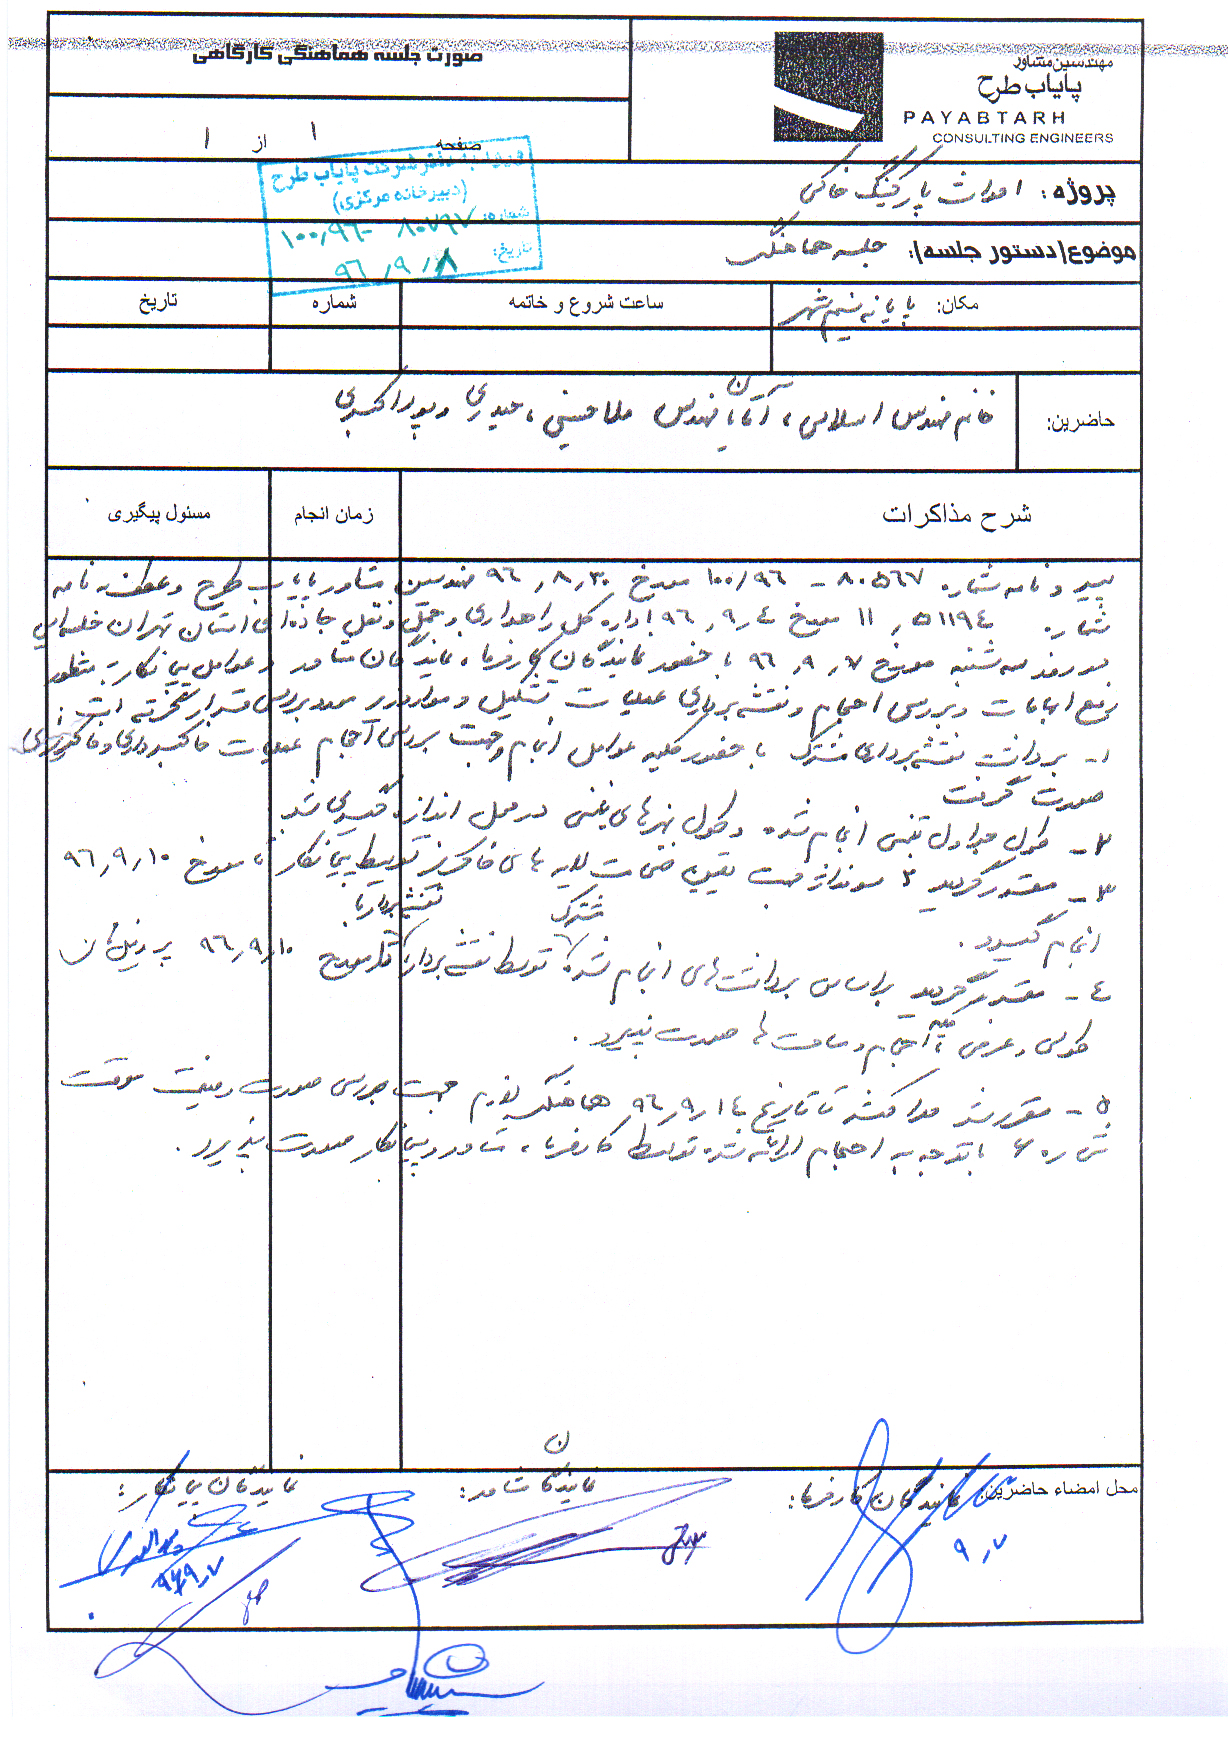 صورت جلسه هماهنگی کارگاهی
مهندسین مشاور
پایاب طرح
PAYABTARH
CONSULTING ENGINEERS
صفحه ۱ از ۱
ورود به دفتر شرکت پایاب طرح
(دبیرخانه مرکزی)
شماره: ۱۰۰٫۹۶-۸۰۷۹۷
تاریخ: ۹۶٫۹٫۸
پروژه: احداث پارکینگ خاکی
موضوع(دستور جلسه): جلسه هماهنگی
مکان: پایانه نسیم شهر
ساعت شروع و خاتمه
شماره
تاریخ
حاضرین: خانم مهندس اسلامی، آقایان مهندس ملاحسنی، حیدری و پوراکبری
شرح مذاکرات
زمان انجام
مسئول پیگیری
پیرو نامه شماره ۸۰۵۶۷ - ۱۰۰/۹۶ مورخ ۹۶٫۸٫۳۰ مهندسین مشاور پایاب طرح و عطف به نامه
شماره ۱۱٫۵۱۱۹۴ مورخ ۹۶٫۹٫۴ اداره کل راهداری و حمل و نقل جاده ای استان تهران جلسه ای
در روز سه شنبه مورخ ۹۶٫۹٫۷ با حضور نمایندگان کارفرما، نمایندگان مشاور و عوامل پیمانکار به منظور
رفع ابهامات و بررسی احجام و نقشه برداری عملیات تشکیل و موارد زیر مورد بررسی قرار گرفته است:
۱- برداشت نقشه برداری مشترک با حضور کلیه عوامل انجام و جهت بررسی احجام عملیات خاکبرداری و خاکریزی
صورت گرفت
۲- طول جداول بتنی انجام شده و طول نهرهای بتنی در محل اندازه گیری شد.
۳- مقرر گردید ۲ سونداژ جهت تعیین ضخامت لایه های خاکریز توسط پیمانکار تا مورخ ۹۶٫۹٫۱۰
انجام گیرد.
مشترک
نقشه بردارها
۴- مقرر گردید براساس برداشت های انجام شده توسط نقشه بردار تا مورخ ۹۶٫۹٫۱۰ پروفیل های
طولی و عرضی احجام و مساحت ها صورت پذیرد.
۵- مقرر شد حداکثر تا تاریخ ۹۶٫۹٫۱۴ هماهنگی لازم جهت بررسی صورت وضعیت موقت
شماره ۶ با توجه به احجام ارائه شده توسط کارفرما، مشاور و پیمانکار صورت پذیرد.
محل امضاء حاضرین: نمایندگان کارفرما:
نمایندگان مشاور:
نمایندگان پیمانکار:
۹٫۷
۹۶٫۹٫۷